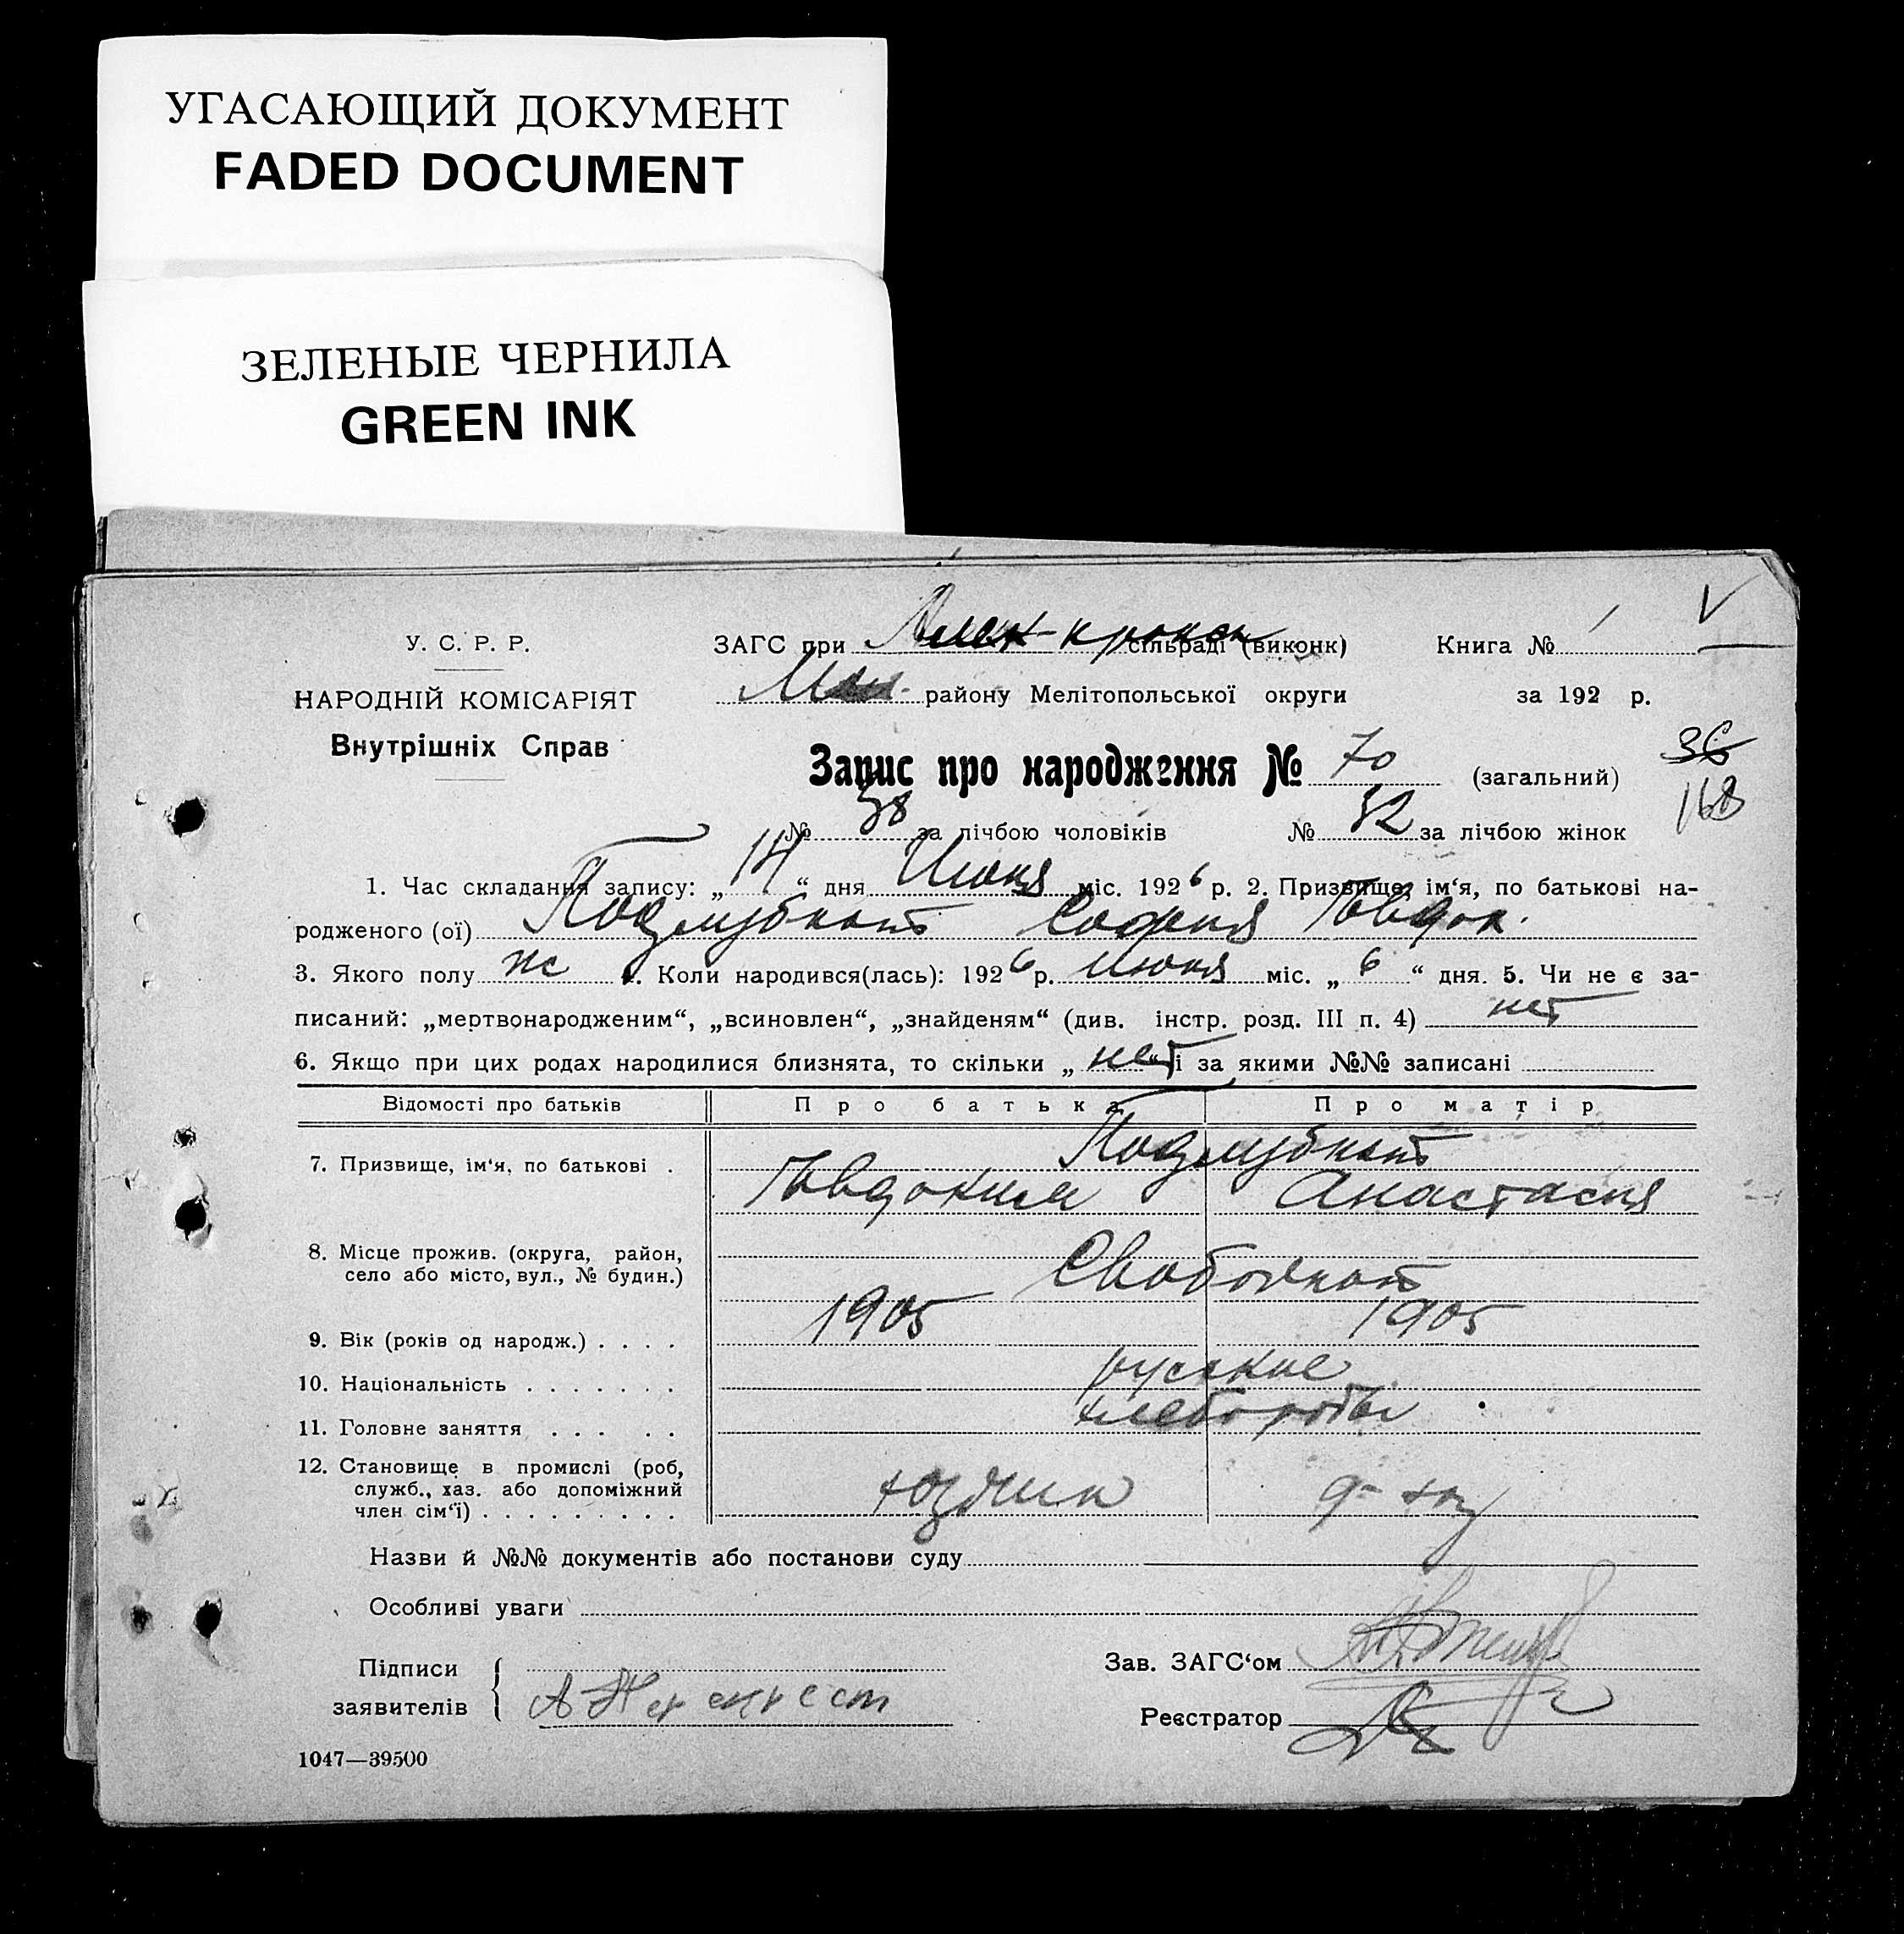 УГАСАЮЩИЙ ДОКУМЕНТ
FADED DOCUMENT
ЗЕЛЕНЫЕ ЧЕРНИЛА
GREEN INK
У. С. Р. Р.
НАРОДНІЙ КОМІСАРІЯТ
Внутрішніх Справ
ЗАГС при сільраді (виконк) Книга №
району Мелітопольської округи за 192 р.
Запис про народження № 70 (загальний) 36
168
№ 38 за лічбою чоловіків № 32 за лічбою жінок
1. Час складання запису: „14“ дня Июня міс. 1926 р. 2. Призвище, ім‘я, по батькові на-
родженого (ої) София Евдок.
3. Якого полу ж 4. Коли народився(лась): 1926 р. Июня міс. „6“ дня. 5. Чи не є за-
писаний: „мертвонародженим“, „всиновлен“, „знайденям“ (див. інстр. розд. III п. 4) нет
6. Якщо при цих родах народилися близнята, то скільки „нет“ і за якими №№ записані
Відомості про батьків Про батька Про матір
7. Призвище, ім‘я, по батькові .
Евдоким Анастасия
8. Місце прожив. (округа, район,
село або місто, вул., № будин.)
9. Вік (років од народж.) . . . . 1905 1905
10. Національність . . . . . . . русские
11. Головне заняття . . . . . хлеборобы
12. Становище в промислі (роб,
служб., хаз. або допоміжний
член сім‘ї) . . . . . . . . .
Назви й №№ документів або постанови суду
Особливі уваги
Підписи
заявителів
Зав. ЗАГС‘ом
Реєстратор
1047—39500